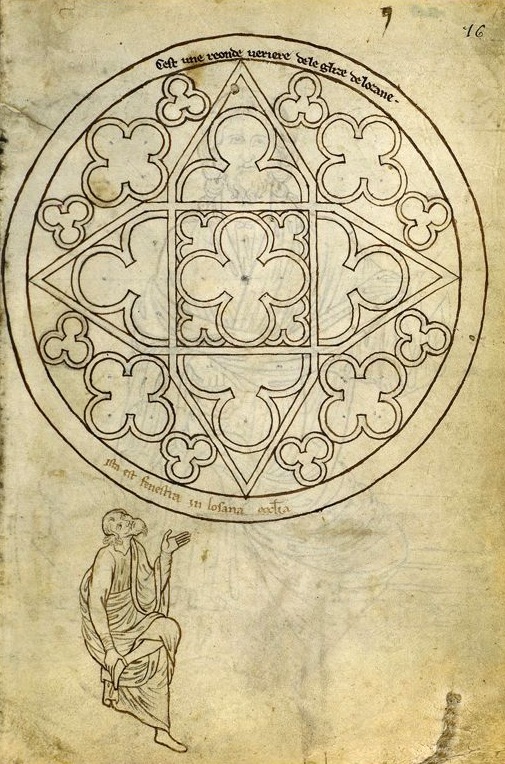 16
Cest une reonde veriere dele glize de lozane.
ista est fenestra in losana eccl̃ia